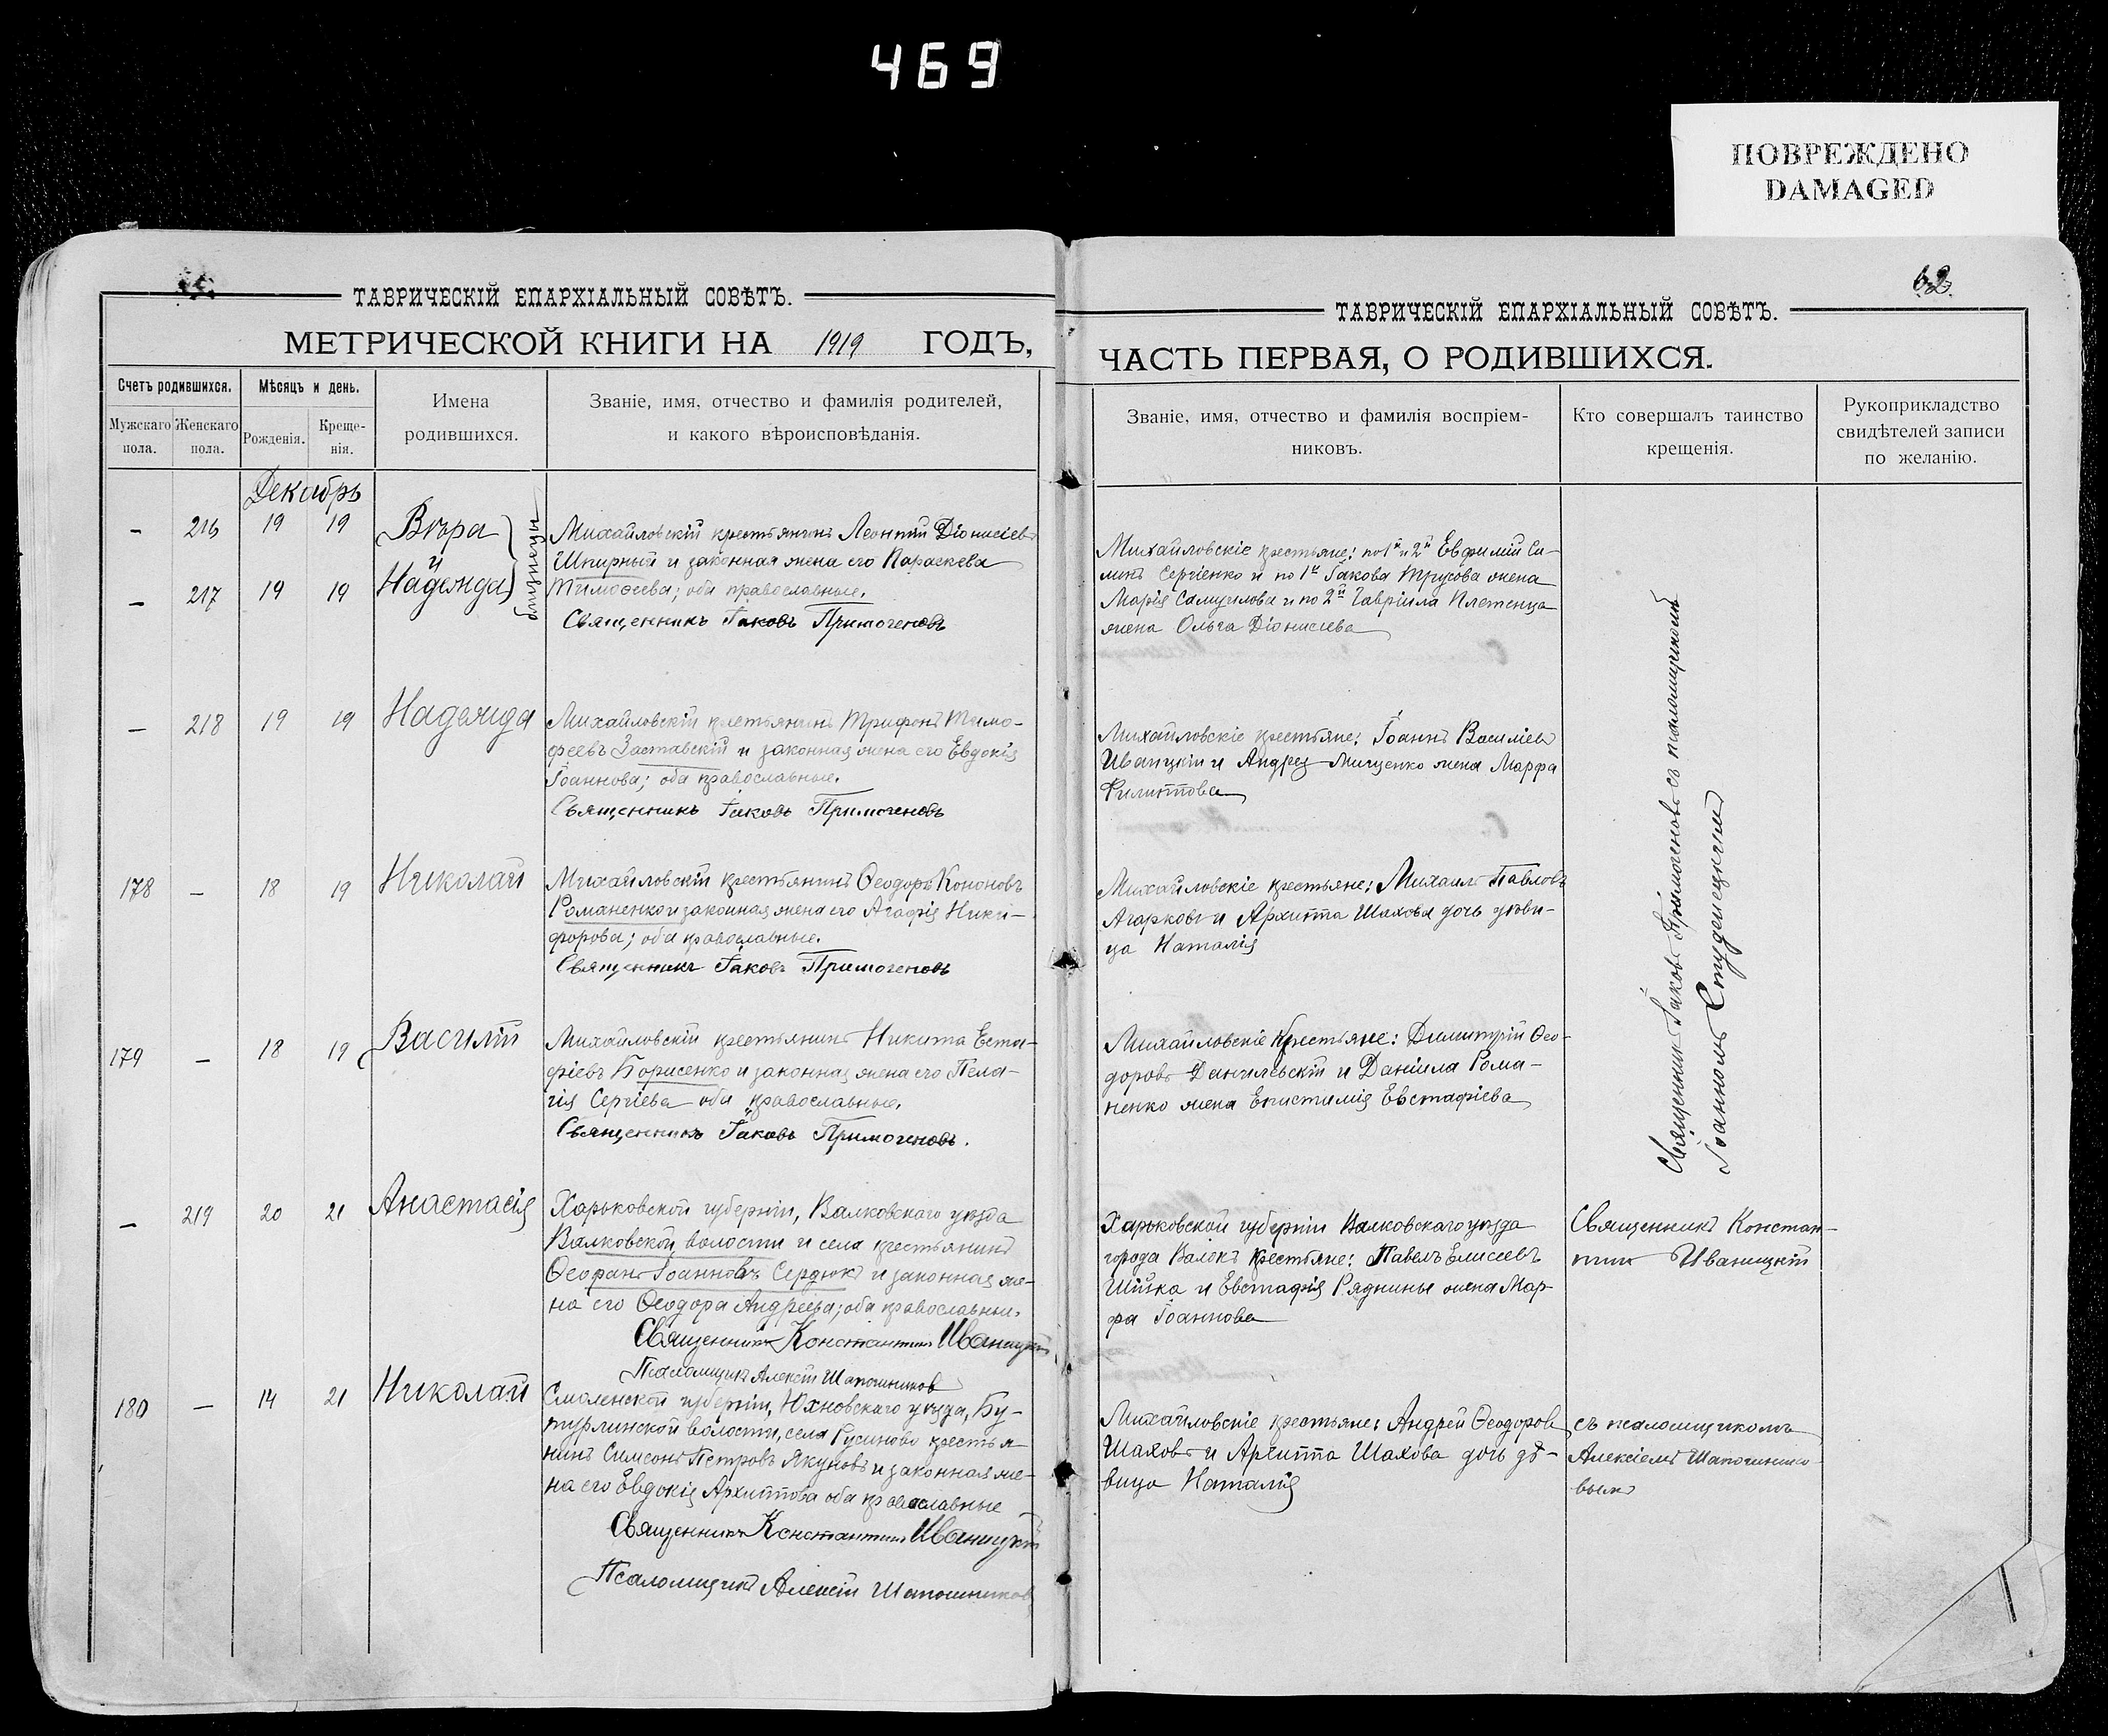 469
ПОВРЕЖДЕНО
DAMAGED
ТАВРИЧЕСКІЙ ЕПАРХІАЛЬНЫЙ СОВѢТЪ.
МЕТРИЧЕСКОЙ КНИГИ НА 1919 ГОДЪ,
Счетъ родившихся.
Мѣсяцъ и день.
Мужскаго пола.
Женскаго пола.
Рожденія.
Креще-
нія.
Имена
родившихся.
Званіе, имя, отчество и фамилія родителей,
и какого вѣроисповѣданія.
Декабрь
– 216 19 19 Вѣра
и
– 217 19 19 Надежда
близнецы
Михайловскій крестьянинъ Леонтій Діонисіевъ
Шпирный и законная жена его Параскева
Тимоѳеева; оба православные.
Священникъ Іаковъ Примогеновъ
– 218 19 19 Надежда
Михайловскій крестьянинъ Трифонъ Тимо-
феевъ Заставскій и законная жена его Евдокія
Іоаннова; оба православные.
Священникъ Іаковъ Примогеновъ
178 – 18 19 Николай
Михайловскій крестьянинъ Ѳеодоръ Кононовъ
Романенко и законная жена его Агафія Ники-
форова; оба православные.
Священникъ Іаковъ Примогеновъ
179 – 18 19 Василій
Михайловскій крестьянинъ Никита Евста-
фіевъ Борисенко и законная жена его Пела-
гія Сергіева оба православные.
Священникъ Іаковъ Примогеновъ.
– 219 20 21 Анастасія
Харьковской губерніи, Валковскаго уѣзда
Валковской волости и села крестьянинъ
Ѳеофанъ Іоанновъ Сердюкъ и законная же-
на его Ѳеодора Андреева; оба православные.
Священникъ Константинъ Иваницкій
Псаломщикъ Алексій Шапошниковъ
180 – 14 21 Николай
Смоленской губерніи, Юхновскаго уѣзда, Бу-
турлинской волости, села Гусиново крестья-
нинъ Симеонъ Петровъ Якуновъ и законная же-
на его Евдокія Архиппова оба православные
Священникъ Константинъ Иваницкій
Псаломщикъ Алексій Шапошниковъ
62
ТАВРИЧЕСКІЙ ЕПАРХІАЛЬНЫЙ СОВѢТЪ.
ЧАСТЬ ПЕРВАЯ, О РОДИВШИХСЯ.
Званіе, имя, отчество и фамилія воспріем-
никовъ.
Кто совершалъ таинство
крещенія.
Рукоприкладство
свидѣтелей записи
по желанію.
Михайловскіе крестьяне: по 1й и 2й Евфимій Си-
Сергіенко и по 1й Іакова Трусова жена
Марія Самуилова и по 2й Гавріила Плетенца
жена Ольга Діонисіева
Михайловскіе крестьяне: Іоаннъ Василіевъ
Иваницкій и Андрея Мищенко жена Марфа
Филиппова
Михайловскіе крестьяне: Михаилъ Павловъ
Агарковъ и Архиппа Шахова дочь дѣви-
ца Наталія
Михайловскіе крестьяне: Димитрій Ѳео-
доровъ Данилевскій и Даніила Рома-
ненко жена Епистимія Евстафіева
Священникъ Іаковъ Примогеновъ съ псаломщикомъ
Іоанномъ Студенецкимъ
Харьковской губерніи Валковскаго уѣзда
города Валокъ крестьяне: Павелъ Елисеевъ
Шійка и Евстафія Ряднины жена Мар-
фа Іоаннова
Священникъ Констан-
тинъ Иваницкій
Михайловскіе крестьяне: Андрей Ѳеодоровъ
Шаховъ и Архиппа Шахова дочь дѣ-
вица Наталія
съ псаломщикомъ
Алексіемъ Шапошнико-
вымъ